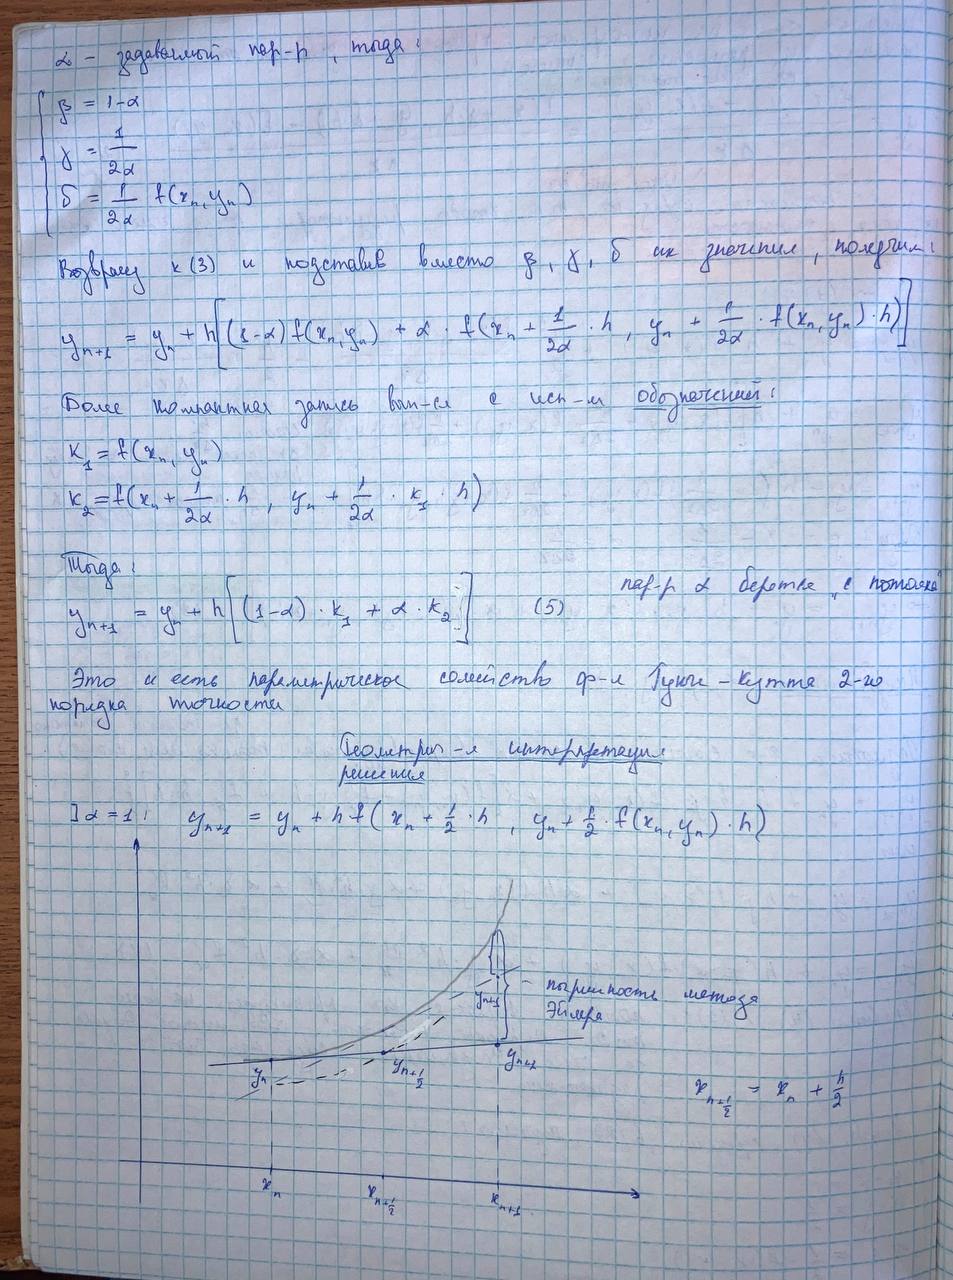 α - задаваемый пар-р, тогда:
β = 1-α
γ = 1/2α
δ = 1/2α f(xₙ, yₙ)
к (3) и подставив вместо β, γ, δ их значения, получим:
yₙ₊₁ = yₙ + h[(1-α) f(xₙ, yₙ) + α · f(xₙ + 1/2α · h, yₙ + 1/2α · f(xₙ, yₙ) · h)]
Более компактная запись вып-ся с исп-м обозначений:
K₁ = f(xₙ, yₙ)
K₂ = f(xₙ + 1/2α · h, yₙ + 1/2α · k₁ · h)
Тогда:
пар-р α берётся "с потолка"
yₙ₊₁ = yₙ + h[(1-α) · k₁ + α · k₂] (5)
Это и есть параметрическое семейство ф-л Рунге-Кутта 2-го
порядка точности
Геометрич-я интерпретация
решения
] α = 1: yₙ₊₁ = yₙ + h f(xₙ + 1/2 · h, yₙ + 1/2 · f(xₙ, yₙ) · h)
yₙ₊₁ - погрешность метода
Эйлера
yₙ yₙ₊½
xₙ₊½ = xₙ + h/2
xₙ xₙ₊½ xₙ₊₁